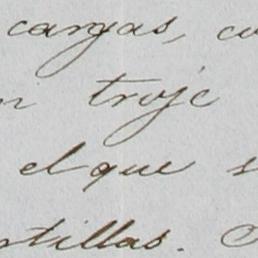 cargas, co
n troje
el que s
rtillas.